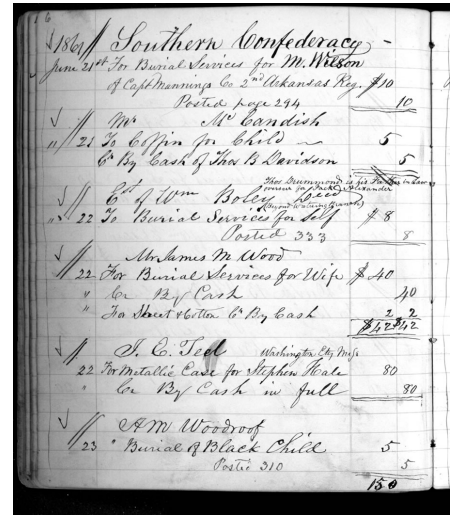 16
1861 Southern Confederacy -
June 21st For Burial Services for M. Wilson
of Capt Mannings Co 2nd Arkansas Reg. $10
Posted page 294 10
Mr McCandish
" 21 To Coffin for Child 5
Cr By Cash of Thos B Davidson 5
Thos Drummond is his Father in Law
overseer for Jack Alexander
Est of Wm Boley Decd
(Beyond Watering Branch)
" 22 To Burial Services for Self $8
Posted 333 8
Mr James M Wood
22 For Burial Services for Wife $40
" Cr By Cash 40
" For Sheet & Cotton Cr By Cash 2 2
$42 $42
J. E. Teel Washington Cty
22 For Metallic Case for Stephen Hale 80
" Cr By Cash in full 80
A M Woodroof
23 " Burial of Black Child 5
Posted 310 5
150